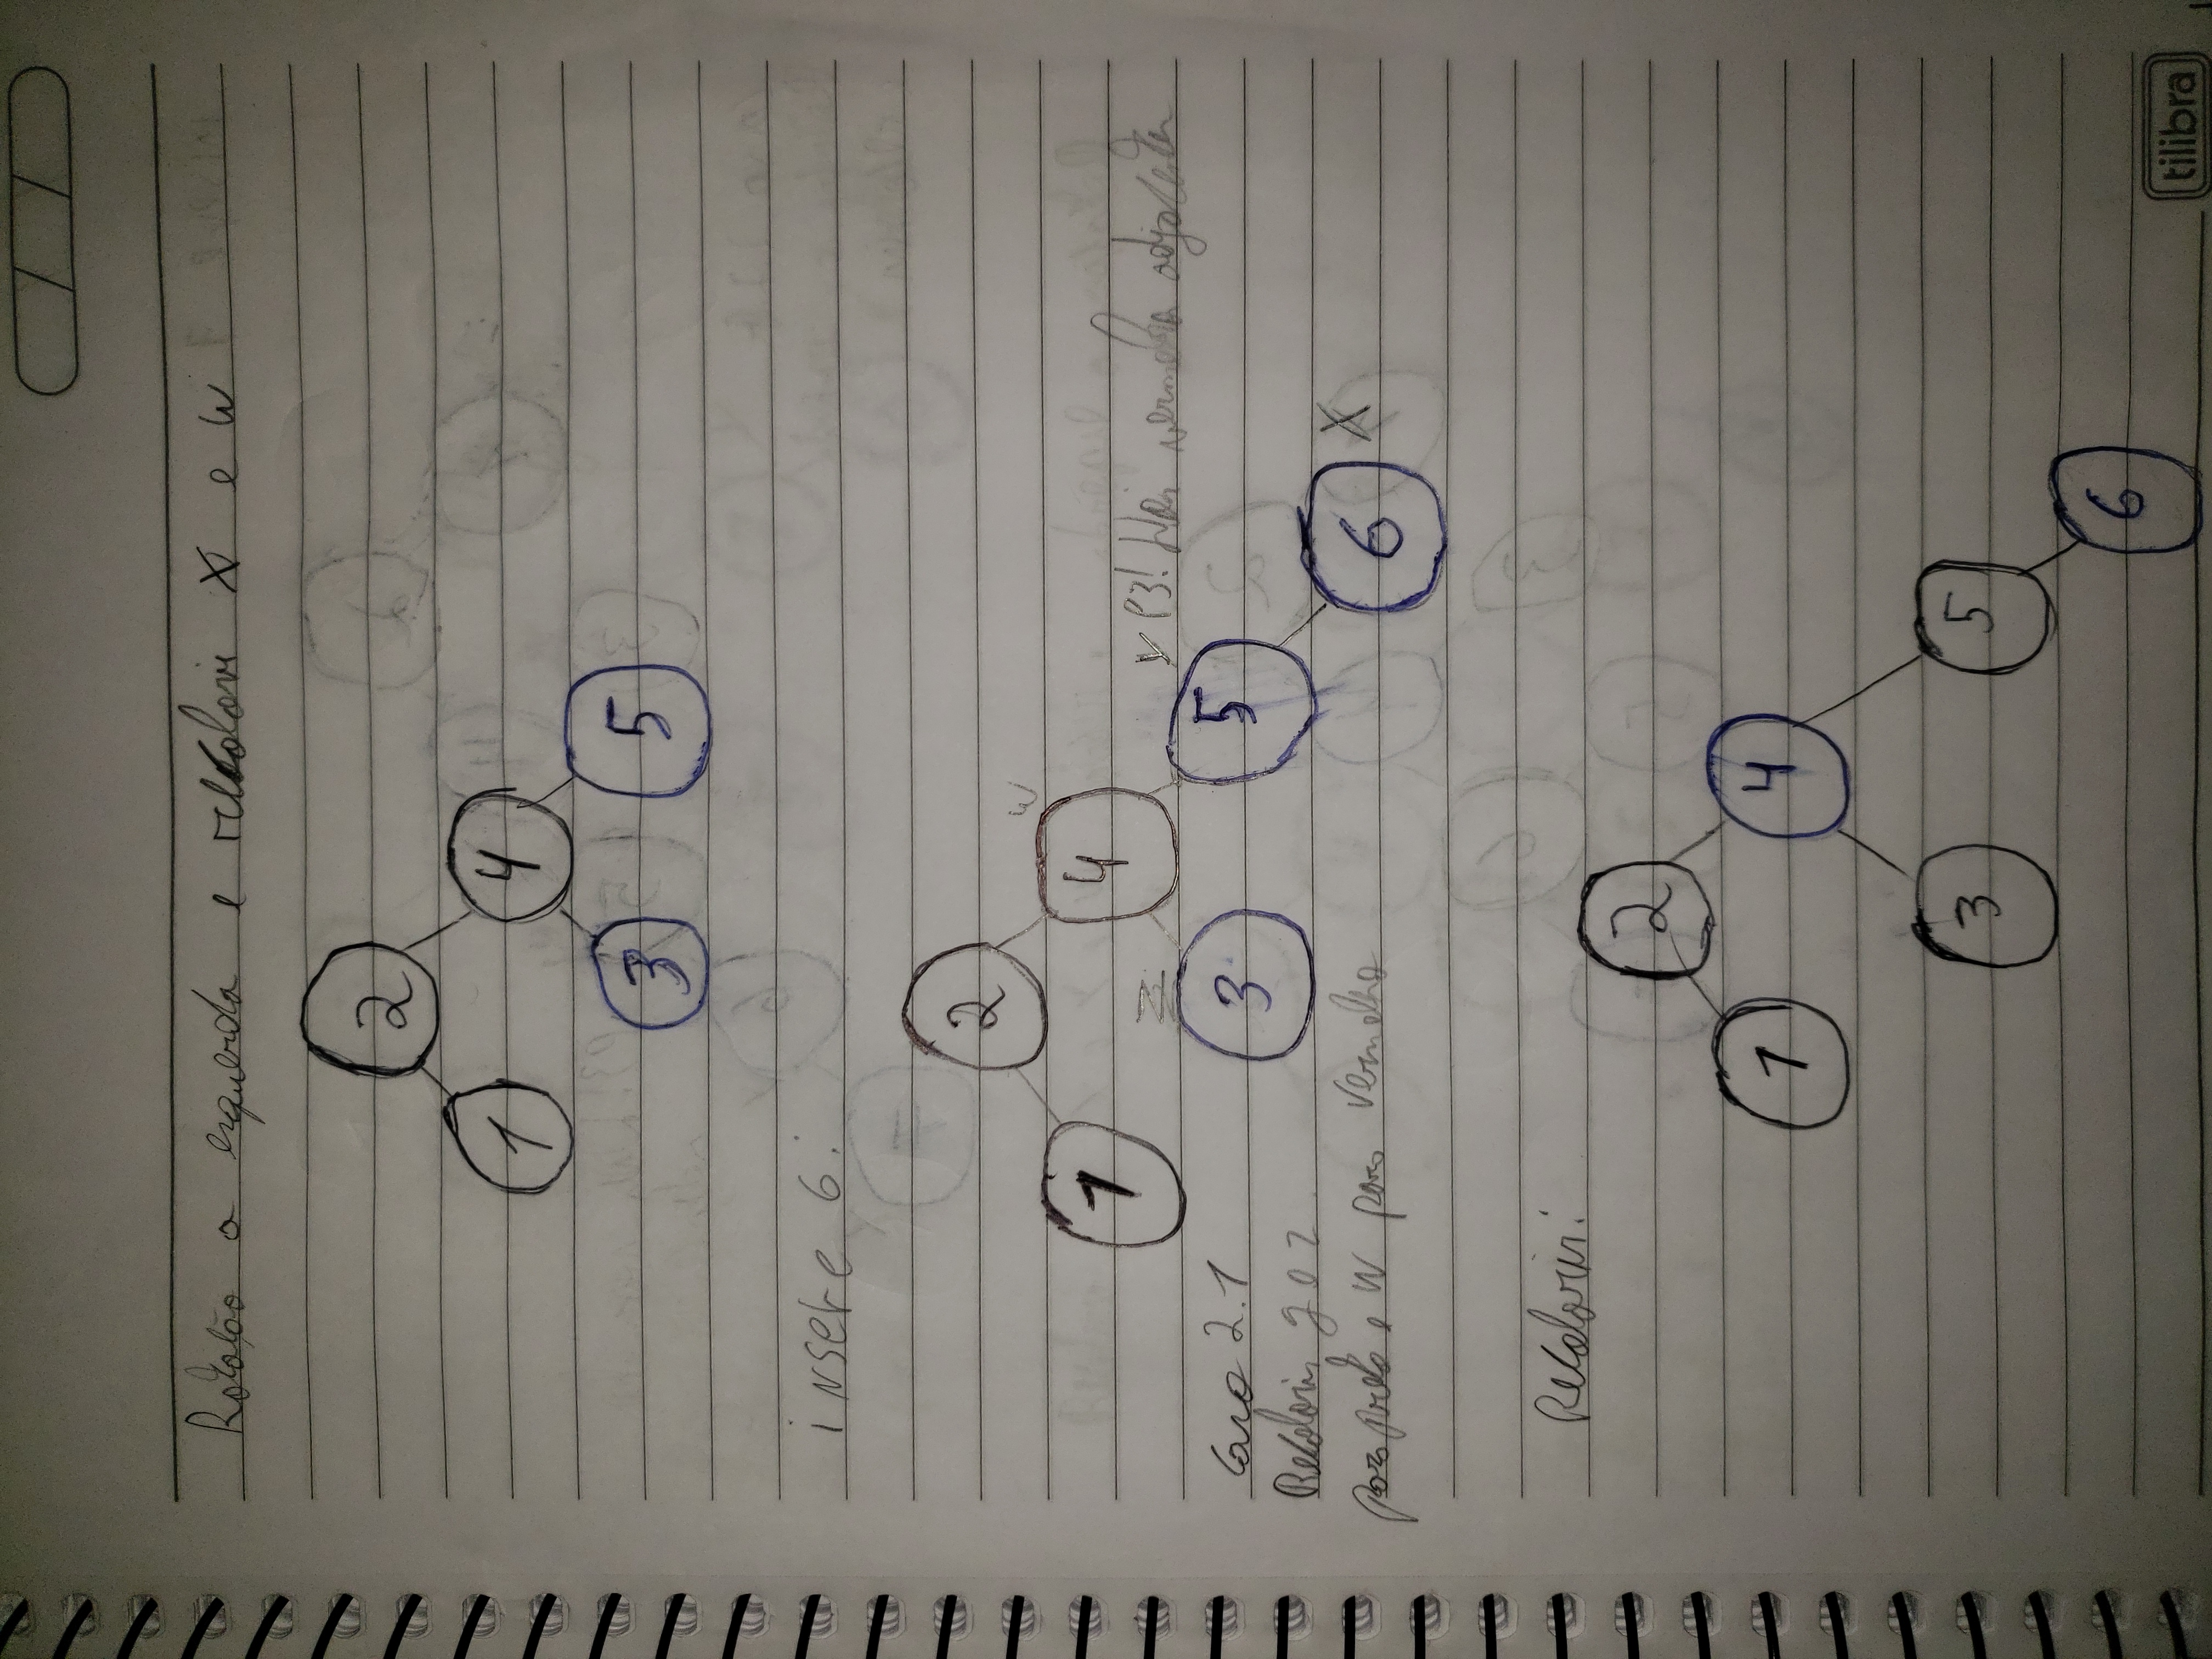 Rotação a esquerda e recolorir X e W
2
1 4
3 5
insere 6:
2
W
1 4
Z
y P3! Nós vermelho adjacentes
3 5
Caso 2.1
Recolorir y e z
para preto e W para vermelho
6 X
Recolorir:
2
1 4
3 5
6
tilibra